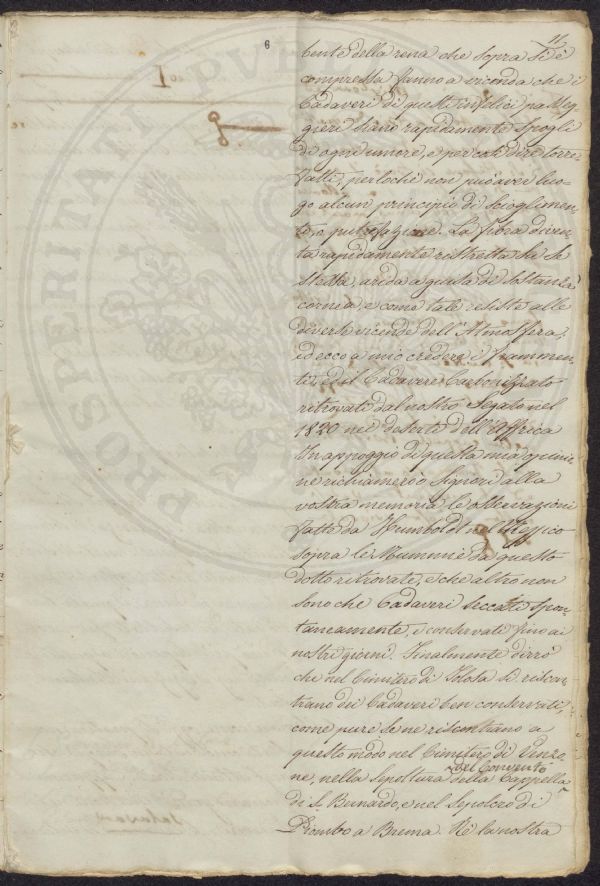 11.
6
bente della rena che sopra si è
compressa fanno a vicenda che i
Cadaveri di questi infelici passeg-
gieri siano rapidamente spogli
di ogni umore, e per così dire torre-
fatti, perloche non può aver luo-
go alcun principio di scioglimen-
to, o putrefazione. La fibra diven-
ta rapidamente ristretta in se
stessa, arida a guisa di sostanza
cornea, e come tale resiste alle
diverse vicende dell'Atmosfera,
ed ecco a mio credere i frammen-
ti, ed il Cadavere Carbonizzato
ritrovato dal nostro Segato nel
1820 nel deserto dell'Affrica
In appoggio di questa mia opinio-
ne richiamerò o Signori alla
vostra memoria le osservazioni
fatte da Humboldt nel Messico
sopra le Mummie da questo
dotto ritrovate, e che altro non
sono che Cadaveri seccati spon-
taneamente, e conservati fino ai
nostri giorni. Finalmente dirrò
che nel Cimitero di Tolosa si riscon-
trano dei Cadaveri ben conservati,
come pure se ne riscontrano a
questo modo nel Cimitero di Venzo-
ne, nella Sepoltura della Cappella
del Convento
di S. Bernardo, e nel Sepolcro di
Piombo a Brema. Nè la nostra
PROSPERITATI PUBLICAE